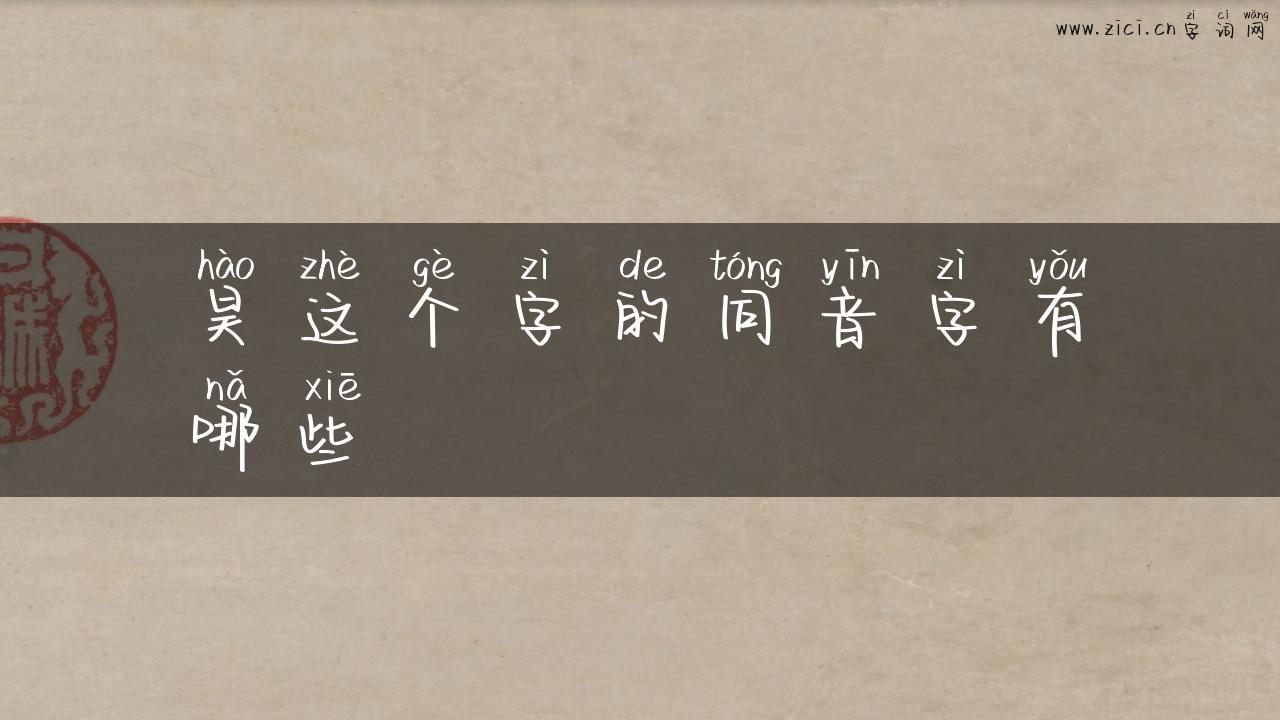 zì cí wǎng
www.zici.cn 字词网
hào zhè gè zì de tóng yīn zì yǒu
昊这个字的同音字有
nǎ xiē
哪些